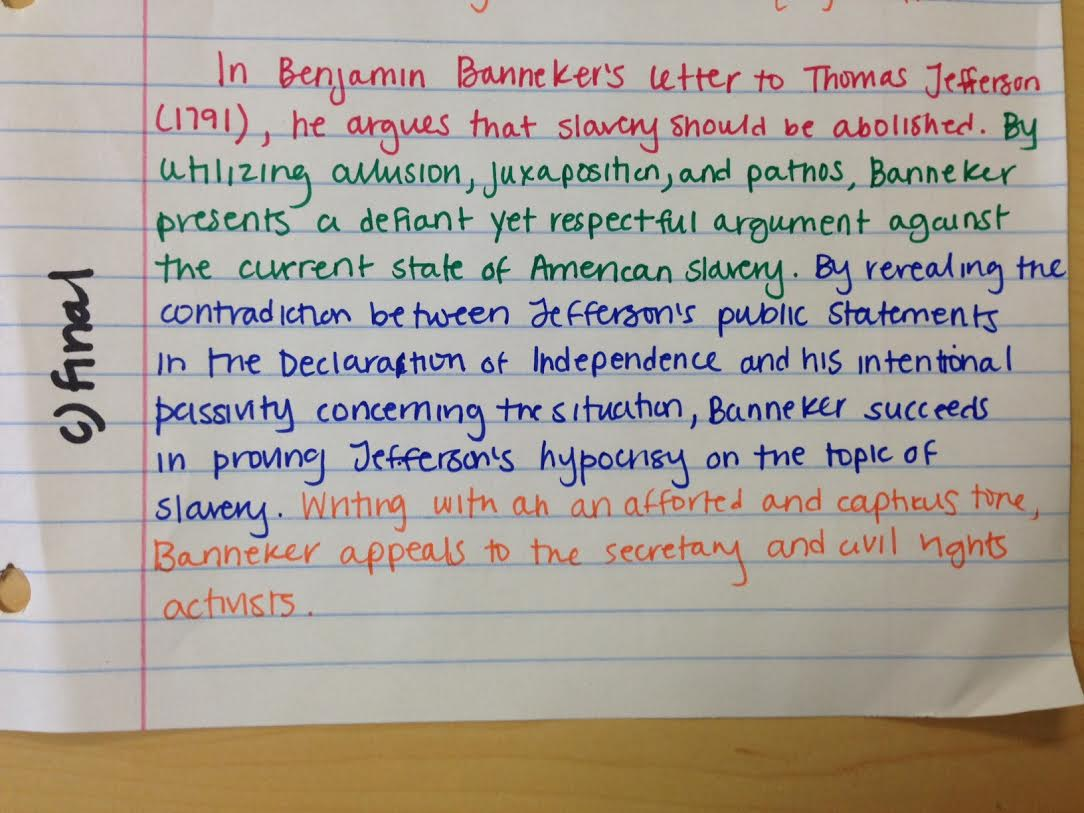 In Benjamin Banneker's letter to Thomas Jefferson
(1791), he argues that slavery should be abolished. By
utilizing allusion, juxaposition, and pathos, Banneker
presents a defiant yet respectful argument against
the current state of American slavery. By revealing the
contradiction between Jefferson's public statements
in the Declaration of Independence and his intentional
passivity concerning the situation, Banneker succeeds
in proving Jefferson's hypocrisy on the topic of
slavery. Writing with an an afforted and captious tone,
Banneker appeals to the secretary and civil rights
activists.
final